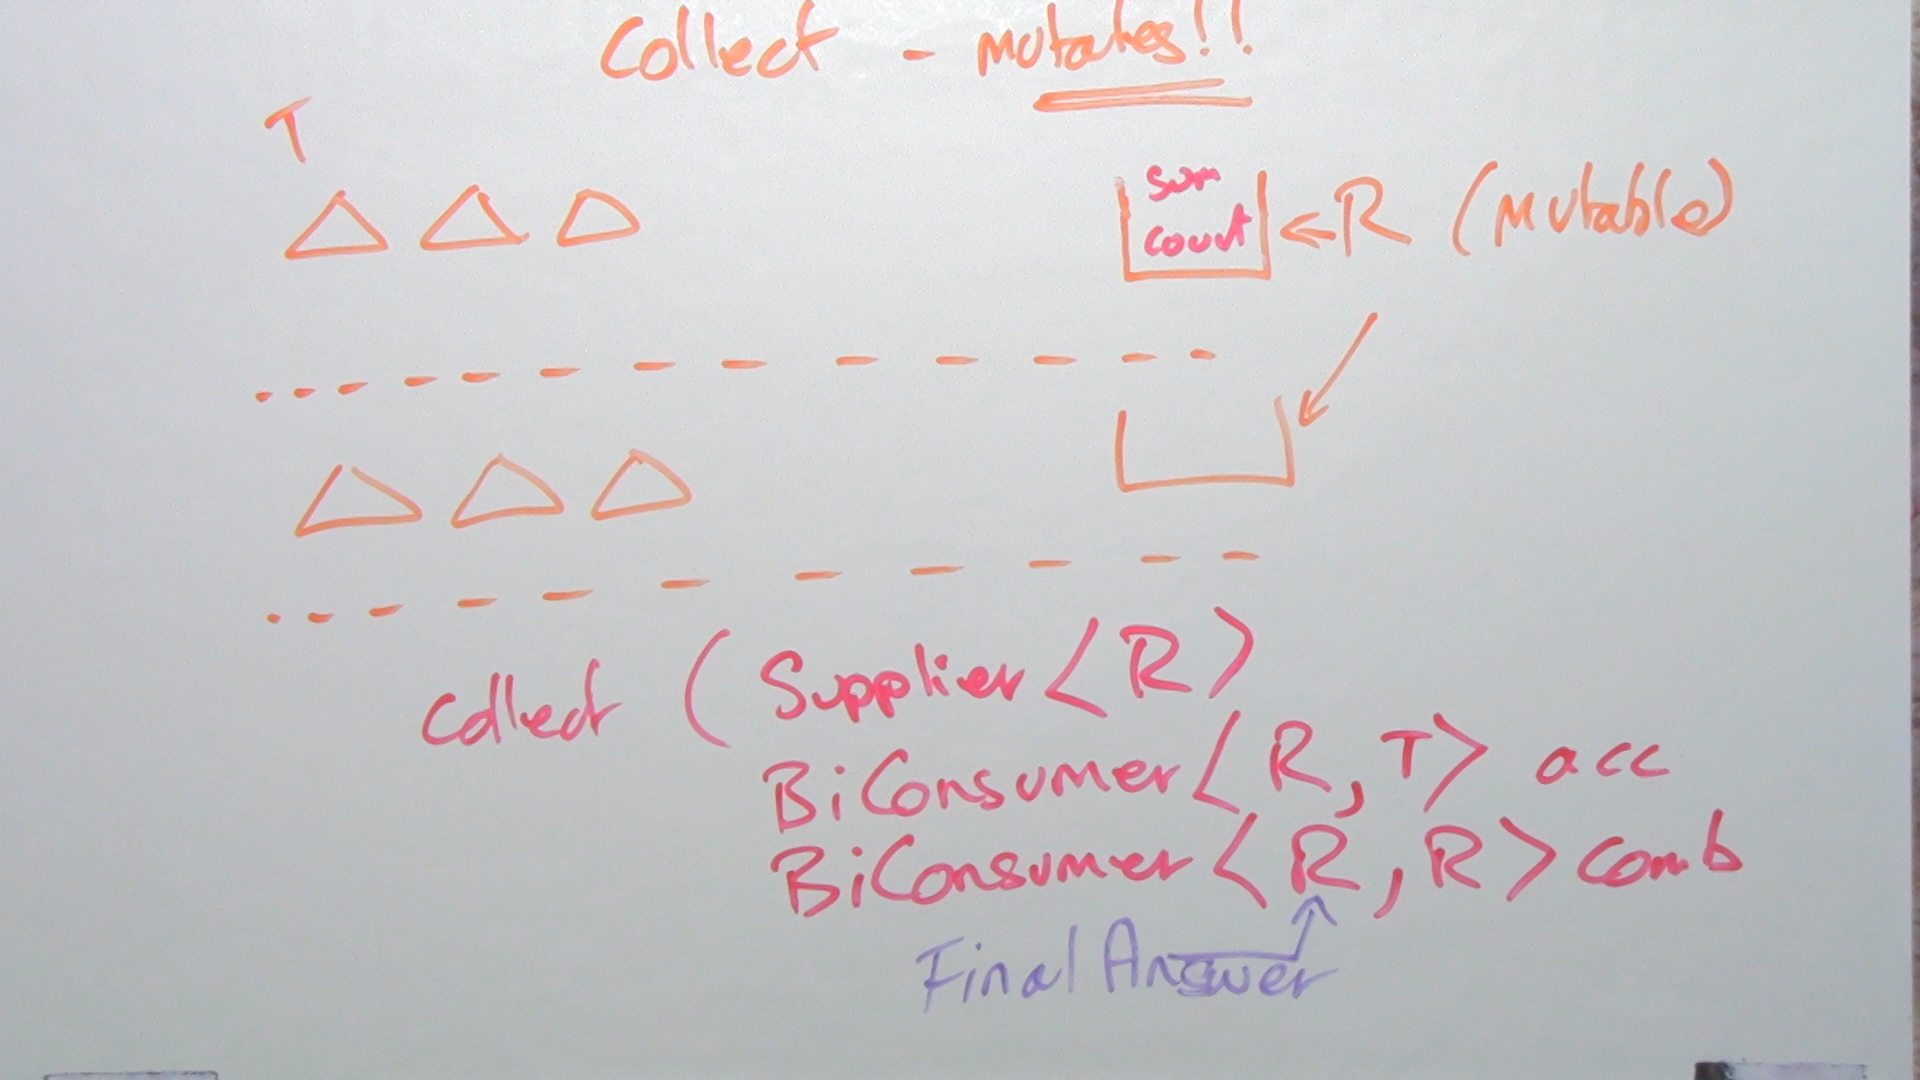 Collect - mutates!!
T
Sum
Count
R (mutable)
Collect ( Supplier<R>
BiConsumer<R, T> acc
BiConsumer<R, R> comb
Final Answer